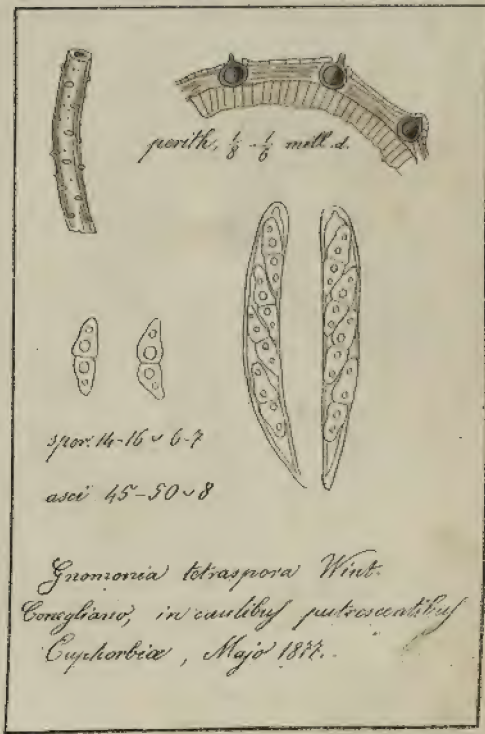 perith, 1/8 - 1/6 mill d.
spor. 14-16 ᴗ 6-7
asci 45-50 ᴗ 8
Gnomonia tetraspora Wint.
Conegliano, in caulibus putrescentibus
Euphorbiæ, Majo 1877.